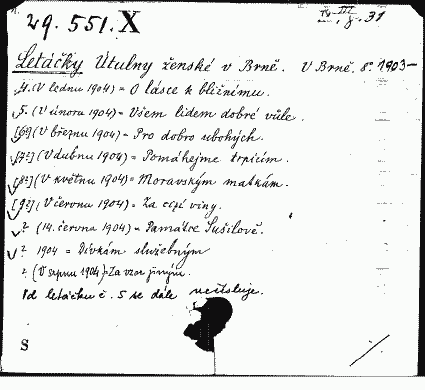 29.551.X
Letáčky Útulny ženské v Brně. V Brně, 8º 1903—
4. (V lednu 1904) = O lásce k bližnímu.
5. (V února 1904) = Všem lidem dobré vůle.
[6?] (V březnu 1904) = Pro dobro ubohých.
[7?] (V dubnu 1904) = Pomáhejme trpícím.
[8?] (V květnu 1904) = Moravským matkám.
[9?] (V červnu 1904) = Za cizí viny.
? (14. června 1904) = Památce Sušilově.
? 1904 = Dívkám služebným
? (V srpnu 1904) = Za vzorem jiným.
Od letáčku č. 5 se dále nečísluje.
S